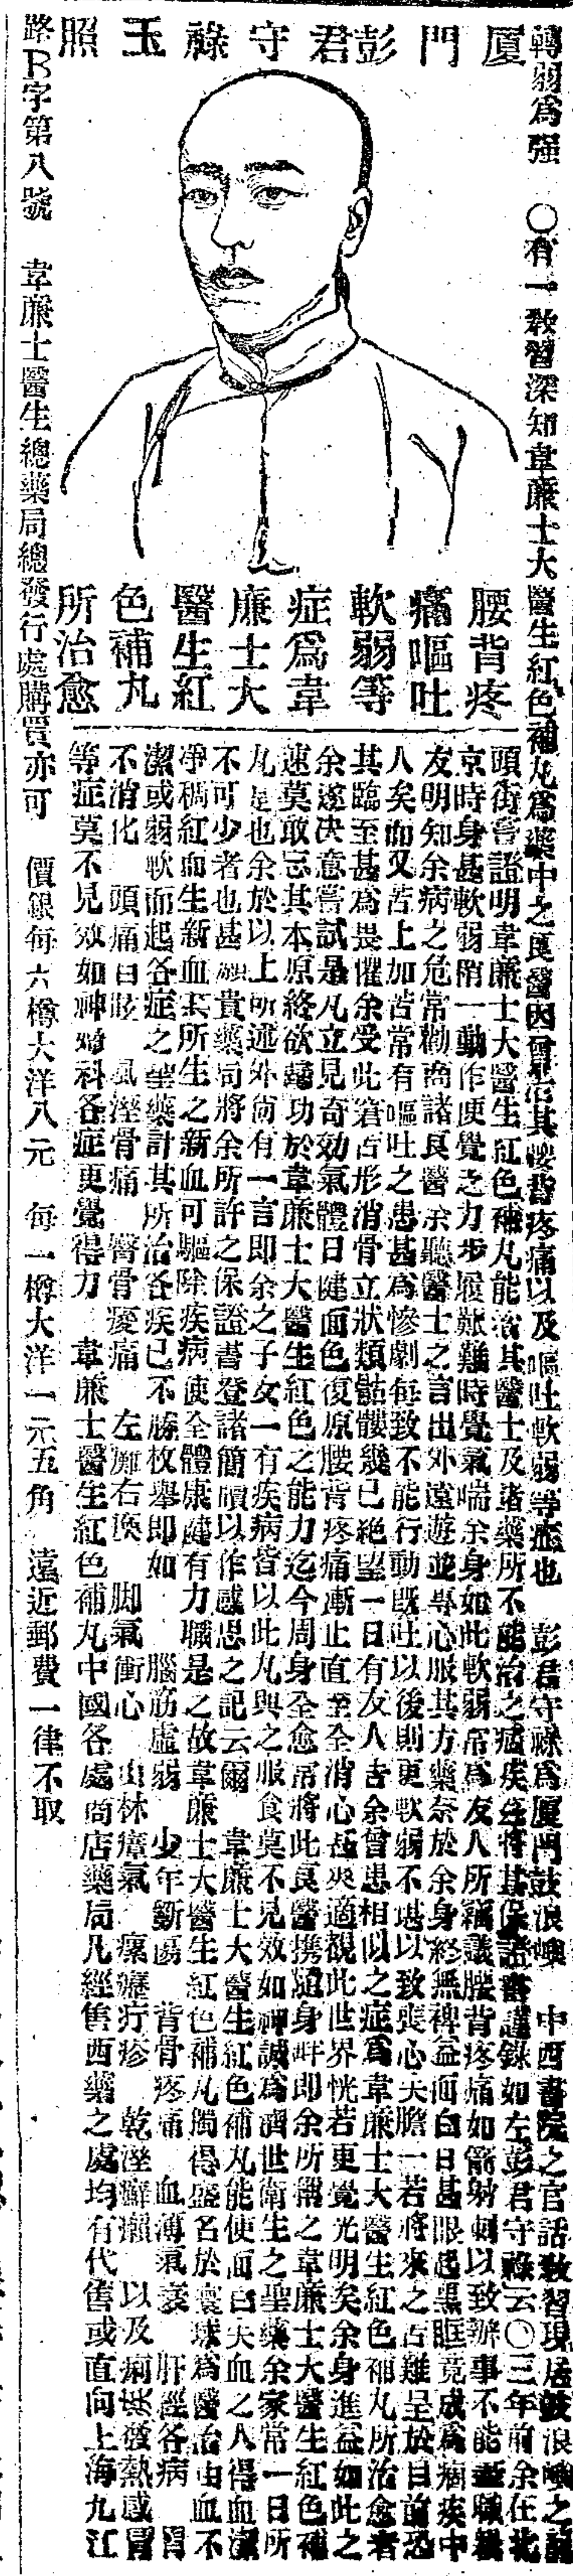 廈門彭君守祿玉照
腰背疼
痛嘔吐
軟弱等
症爲韋
廉士大
醫生紅
色補丸
所治愈
轉弱爲强 〇有一敎習深知韋廉士大醫生紅色補丸爲藥中之良醫因曾治其腰背疼痛以及嘔吐軟弱等症也 彭君守祿爲廈門鼓浪嶼 中西書院之官話敎習現居鼓浪嶼之
頭街嘗證明韋廉士大醫生紅色補丸能治其醫士及諸藥所不能治之痼疾並將其保證書謹錄如左彭君守祿云〇三年前余在北
京時身甚軟弱稍一動作便覺乏力步履艱難時覺氣喘余身如此軟弱常爲友人所竊議腰背疼痛如箭射刺以致辦事不能盡職
友明知余病之危常勸商諸良醫余聽醫士之言出外遠遊並專心服其方藥奈於余身終無裨益面白日甚眼起黑眶竟成爲痼疾中
人矣而又苦上加苦常有嘔吐之患甚爲慘劇每致不能行動旣吐以後則更軟弱不堪以致喪心失膽一若將來之苦難呈於目前恐
其臨至甚爲畏懼余受此窘苦形消骨立狀類骷髏幾已絕望一日有友人告余曾患相似之症爲韋廉士大醫生紅色補丸所治愈者
余遂决意嘗試是丸立見奇効氣體日健面色復原腰背疼痛漸止直至全消心甚爽適視此世界恍若更覺光明矣余身進益如此之
速莫敢忘其本原終欲歸功於韋廉士大醫生紅色之能力迄今周身全愈常將此良醫携隨身畔卽余所謂之韋廉士大醫生紅色補
丸是也余於以上所述外尙有一言卽余之子女一有疾病皆以此丸與之服食莫不見效如神誠爲濟世衛生之聖藥余家常一日所
不可少者也甚願貴藥局將余所許之保證書登諸簡牘以作感恩之記云爾 韋廉士大醫生紅色補丸能使面白失血之人得血潔
净稠紅血生新血其所生之新血可驅除疾病使全體康健有力職是之故韋廉士大醫生紅色補丸獨得盛名於寰球爲醫治由血不
潔或弱軟而起各症之聖藥計其所治各疾已不勝枚舉卽如 腦筋虛弱 少年斲傷 背骨疼痛 血薄氣衰 肝經各病 胃
不消化 頭痛目眩 風溼骨痛 臀骨痠痛 左癱右瘓 脚氣衝心 山林瘴氣 瘰癧疔疹 乾溼癬癩 以及痢疾發熱感冒
等症莫不見效如神婦科各症更覺得力 韋廉士醫生紅色補丸中國各處商店藥局凡經售西藥之處均有代售或直向上海九江
路B字第八號 韋廉士醫生總藥局總發行處購買亦可 價銀每六樽大洋八元 每一樽大洋一元五角 遠近郵費一律不取